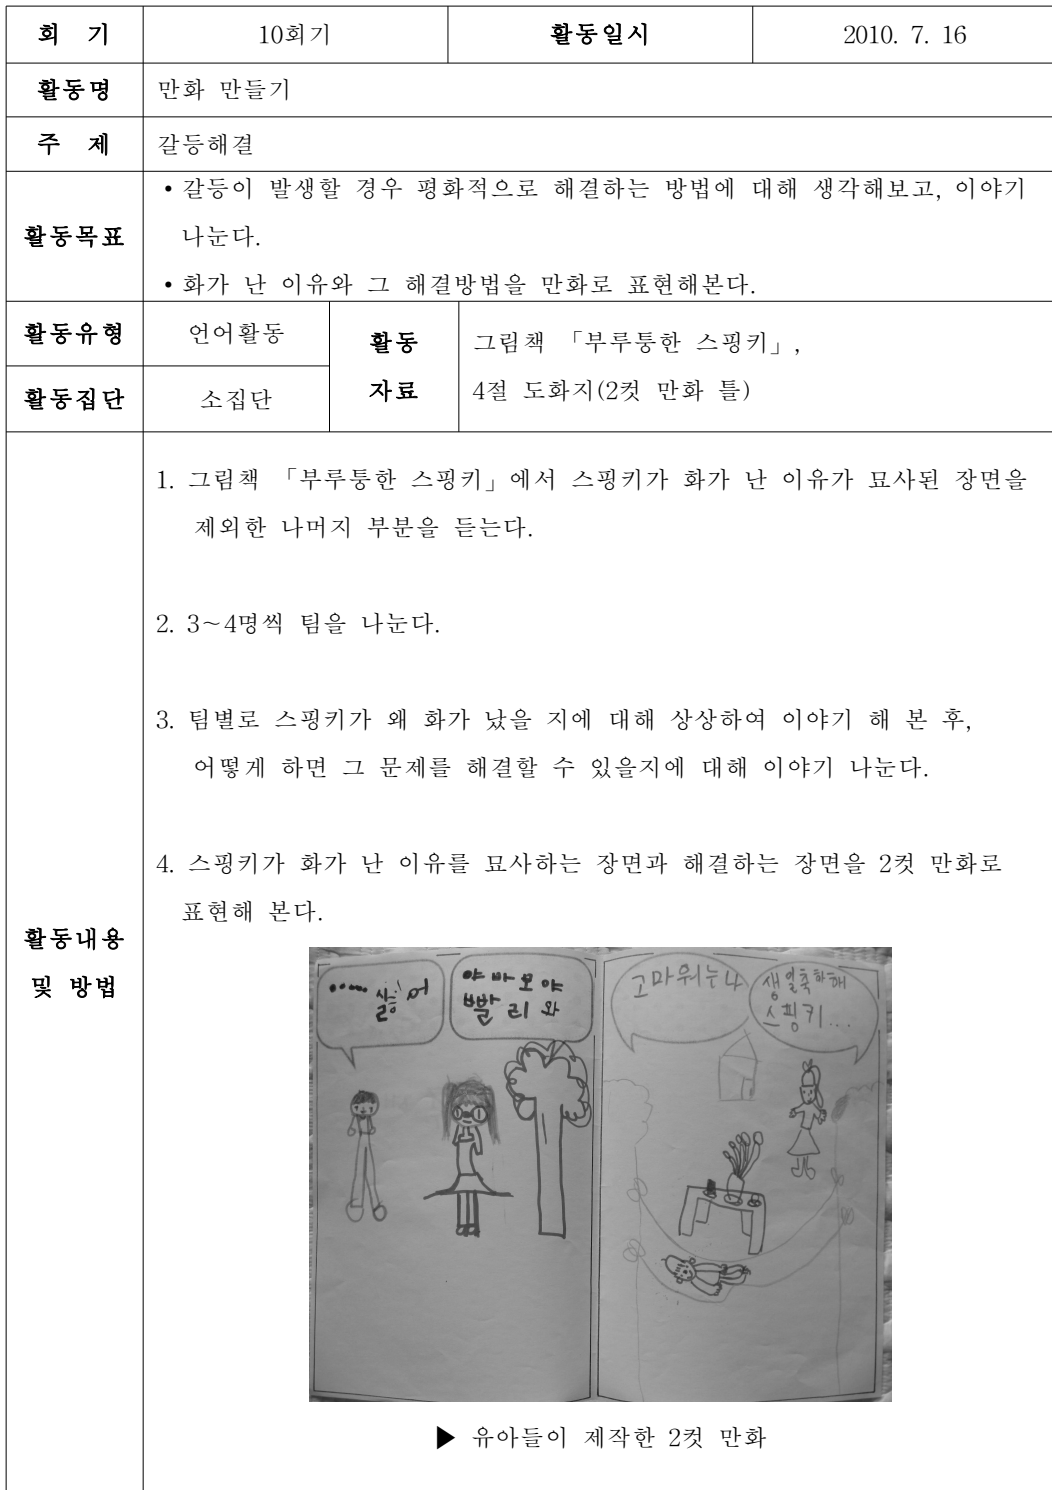 회 기 10회기 활동일시 2010. 7. 16
활동명 만화 만들기
주 제 갈등해결
활동목표
• 갈등이 발생할 경우 평화적으로 해결하는 방법에 대해 생각해보고, 이야기
나눈다.
• 화가 난 이유와 그 해결방법을 만화로 표현해본다.
활동유형 언어활동
활동집단 소집단
활동
자료
그림책 「부루퉁한 스핑키」,
4절 도화지(2컷 만화 틀)
활동내용
및 방법
1. 그림책 「부루퉁한 스핑키」에서 스핑키가 화가 난 이유가 묘사된 장면을
제외한 나머지 부분을 듣는다.
2. 3~4명씩 팀을 나눈다.
3. 팀별로 스핑키가 왜 화가 났을 지에 대해 상상하여 이야기 해 본 후,
어떻게 하면 그 문제를 해결할 수 있을지에 대해 이야기 나눈다.
4. 스핑키가 화가 난 이유를 묘사하는 장면과 해결하는 장면을 2컷 만화로
표현해 본다.
····· 실흥어
야 바보야
빨리 와
고마워는나
생일축하해
스핑키...
▶ 유아들이 제작한 2컷 만화